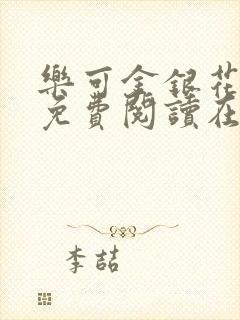 樂可金銀花
免費閱讀在
李喆